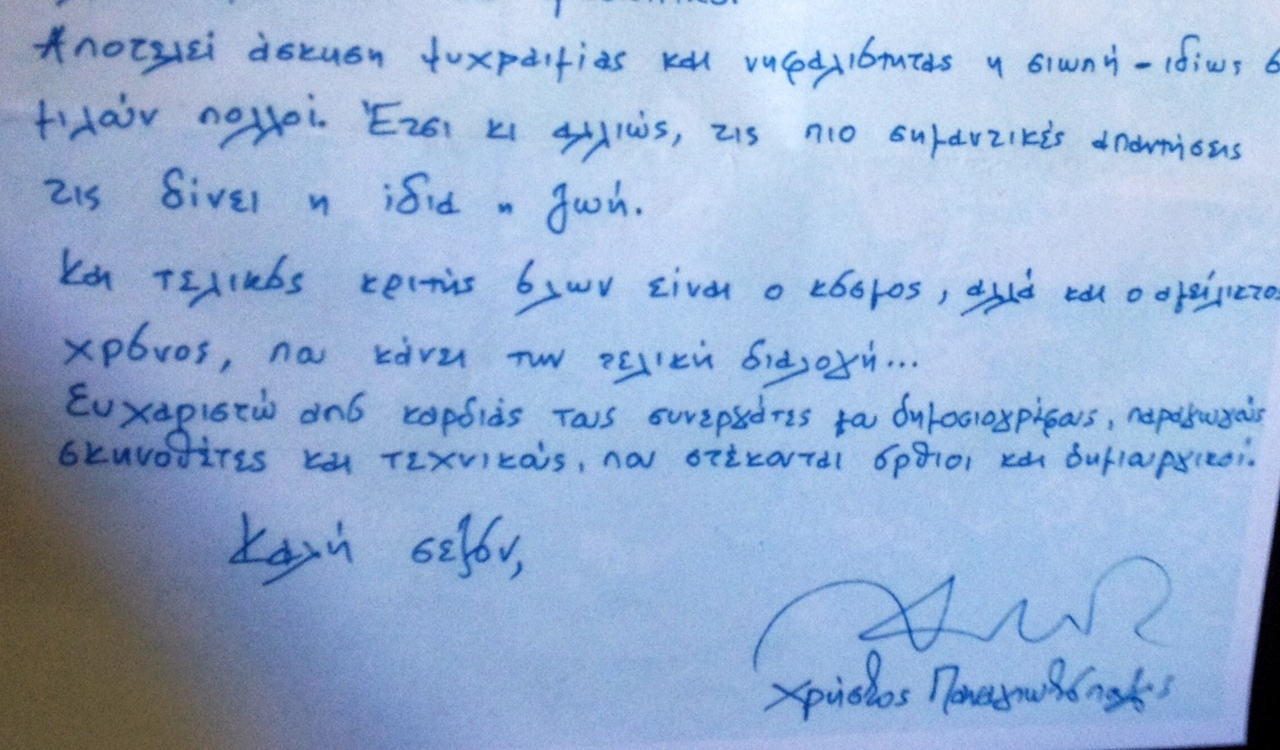 Αποτελεί άσκηση ψυχραιμίας και νηφαλιότητας η σιωπή - ιδίως ό
μιλούν πολλοί. Έτσι κι αλλιώς, τις πιο σημαντικές απαντήσεις
τις δίνει η ίδια η ζωή.
Και τελικός κριτής όλων είναι ο κόσμος, αλλά και ο αμείλικτος
χρόνος, που κάνει την τελική διαλογή...
Ευχαριστώ από καρδιάς τους συνεργάτες μου δημοσιογράφους, παραγωγούς
σκηνοθέτες και τεχνικούς, που στέκονται όρθιοι και δημιουργικοί.
Καλή σεζόν,
Χρήστος Παναγιωτόπουλος